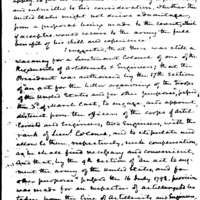 and submitted to his consideration, whether the
United States might not derive advantage
from a proposal being made to the
if accepted, would secure to the army the full
benefit of his skill and experience.
I suggested, that there was still a
vacancy for a lieutenant Colonel of one of the
Regiments of Artillerists & Engineers; that the
President was authorised by the 7th section
of an act for the better organizing of the Troops
of the United States and for other purposes, passed
the 3d of March last, to engage, and appoint
distinct from the officers of the corps of Artil-
lerists and Engineers, two Engineers, with the
rank of lieut Colonel, and to stipulate and
allow to them, respectively, such compensation
as he shall find necessary and convenient,
And that, by the 4th section of an act to aug-
ment the army of the United States, and for
other purposes, passed the 16 July 1798, provision
was made for an Inspector of Artillery, to be
taken from the line of Artillerists and Engineers